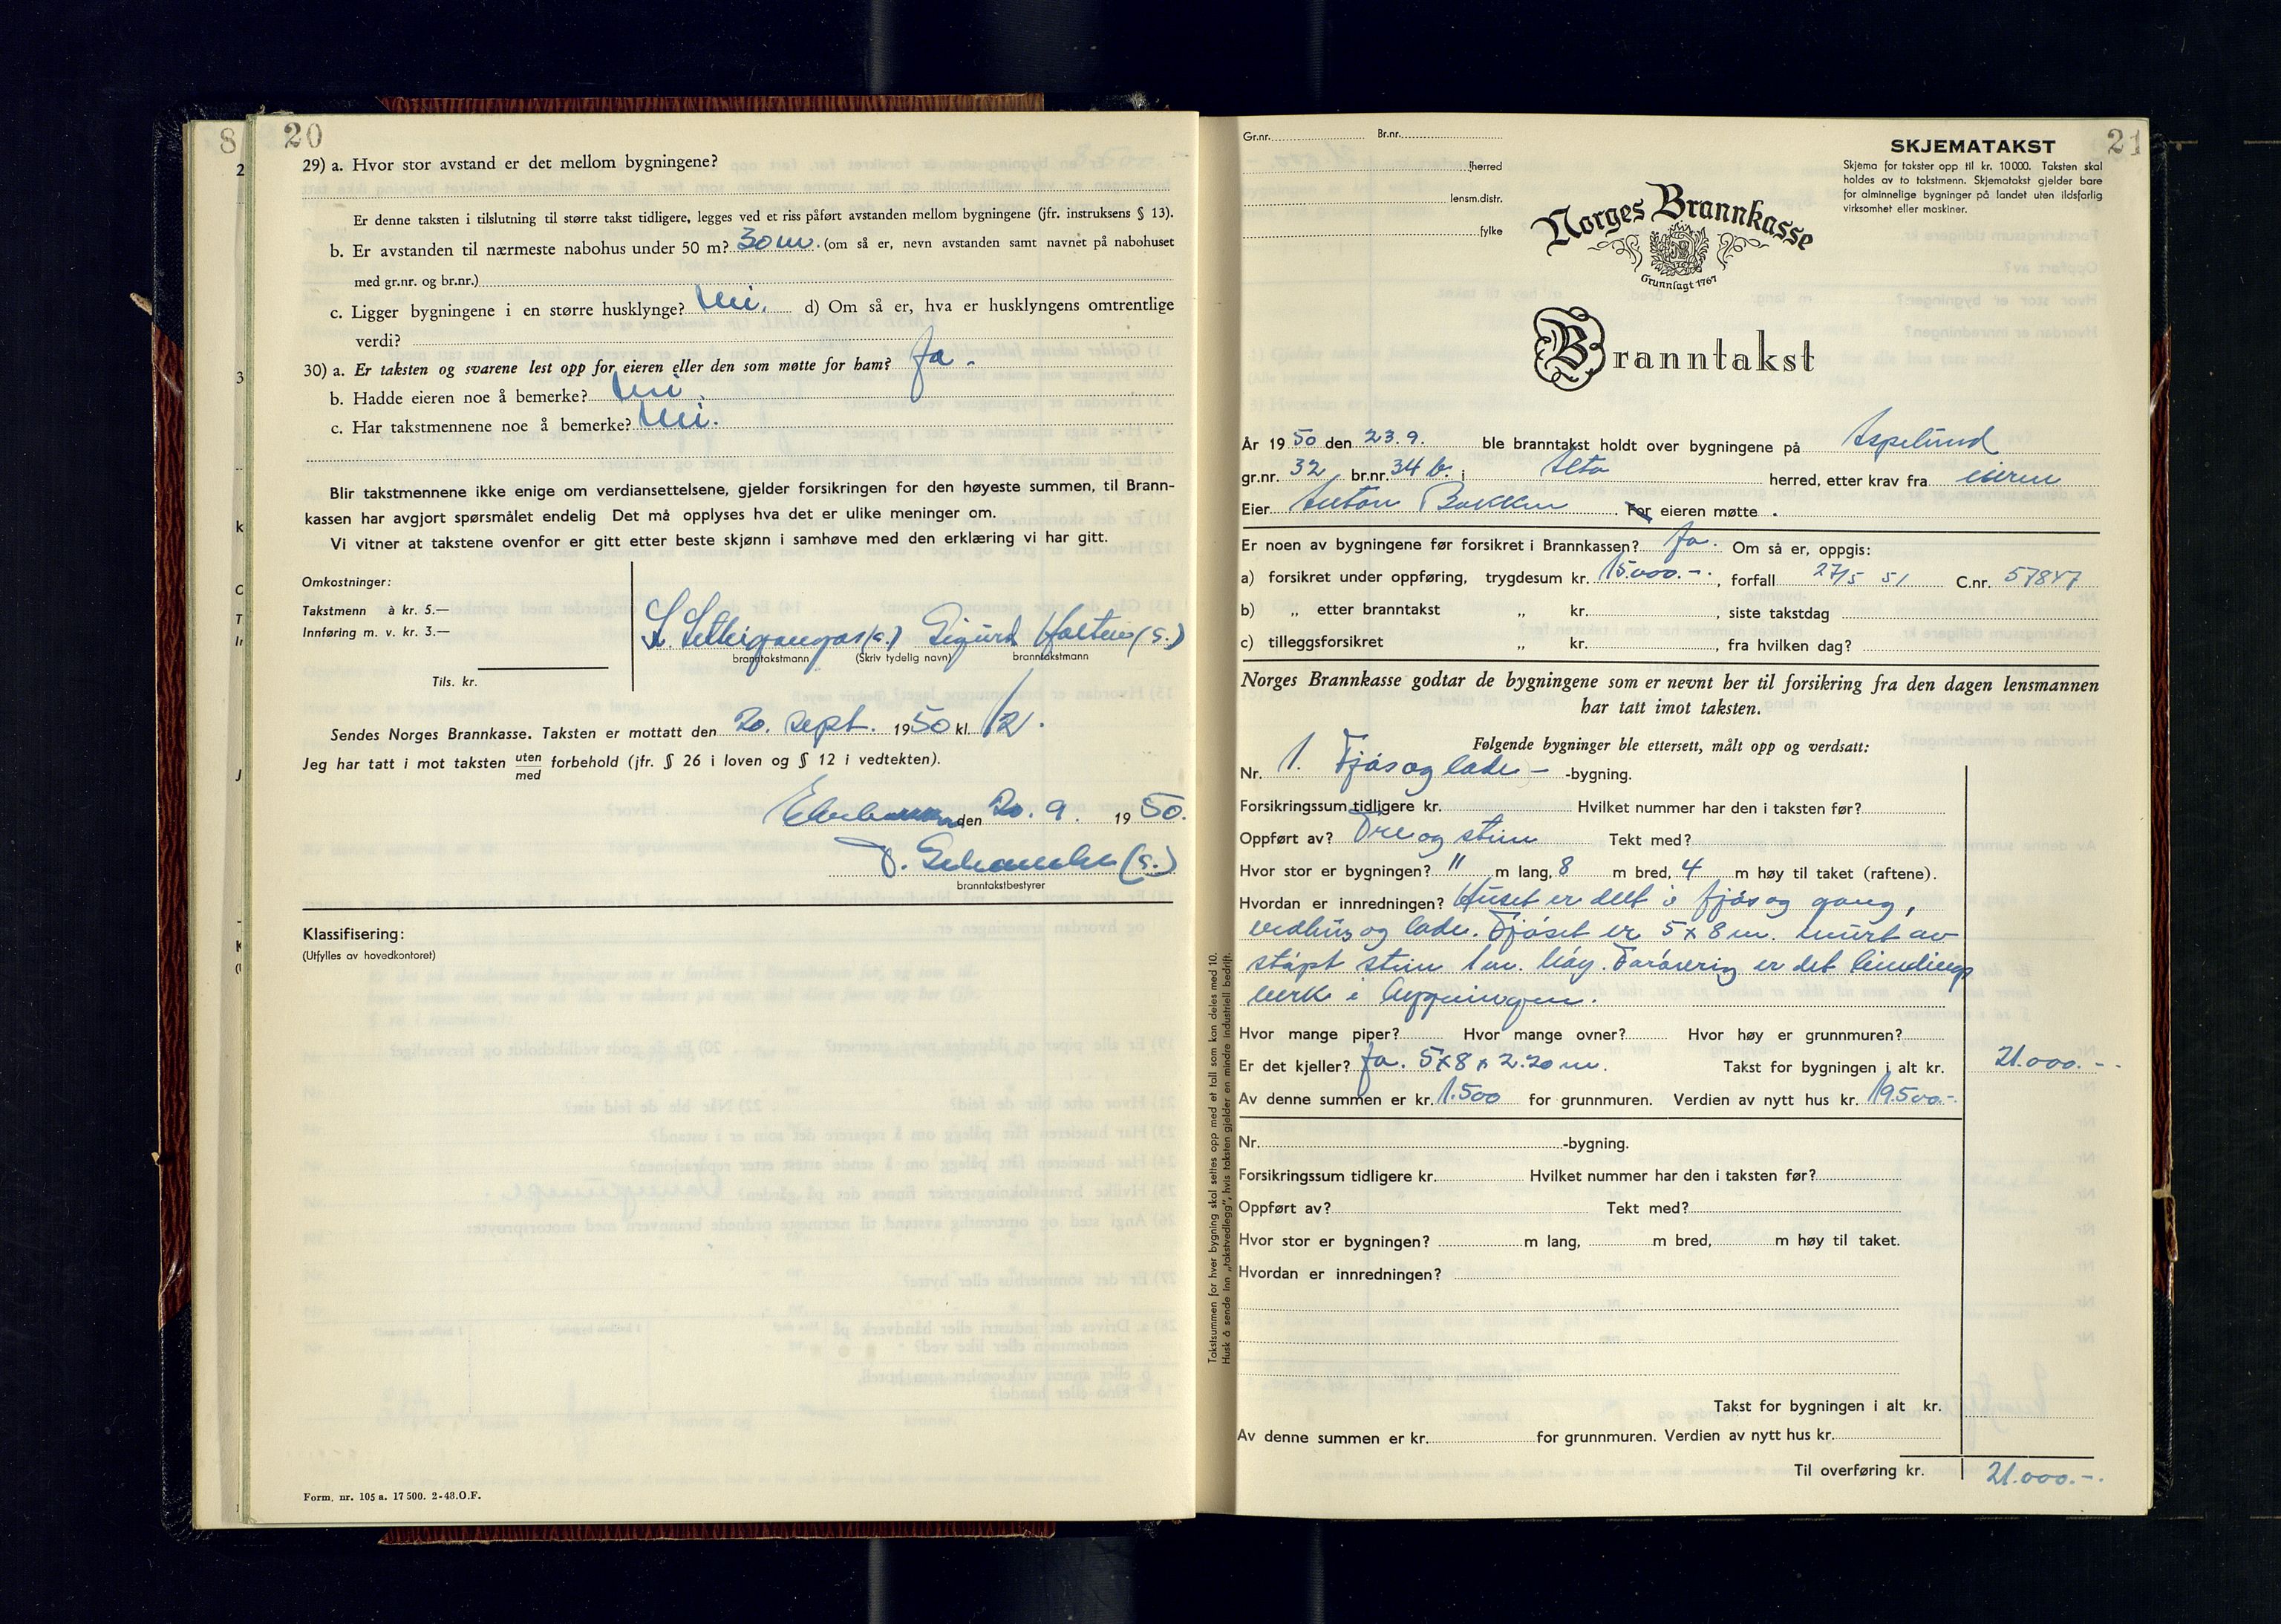 8
20
29) a. Hvor stor avstand er det mellom bygningene?
Er denne taksten i tilslutning til større takst tidligere, legges ved et riss påført avstanden mellom bygningene (jfr. instruksens § 13).
b. Er avstanden til nærmeste nabohus under 50 m? 30 m. (om så er, nevn avstanden samt navnet på nabohuset
med gr.nr. og br.nr.)
c. Ligger bygningene i en større husklynge? Nei. d) Om så er, hva er husklyngens omtrentlige
verdi?
30) a. Er taksten og svarene lest opp for eieren eller den som møtte for ham? Ja -
b. Hadde eieren noe å bemerke? Nei.
c. Har takstmennene noe å bemerke? Nei.
Blir takstmennene ikke enige om verdiansettelsene, gjelder forsikringen for den høyeste summen, til Brann-
kassen har avgjort spørsmålet endelig Det må opplyses hva det er ulike meninger om.
Vi vitner at takstene ovenfor er gitt etter beste skjønn i samhøve med den erklæring vi har gitt.
Omkostninger:
Takstmenn à kr. 5.—
Innføring m. v. kr. 3.—
Tils. kr.
(s.) Sigurd (s.)
branntakstmann (Skriv tydelig navn) branntakstmann
Sendes Norges Brannkasse. Taksten er mottatt den 20. sept. 1950 kl. 12.
Jeg har tatt i mot taksten uten/med forbehold (jfr. § 26 i loven og § 12 i vedtekten).
den 20. 9. 1950.
(s.)
branntakstbestyrer
Klassifisering:
(Utfylles av hovedkontoret)
Form. nr. 105 a. 17 500. 2-48.O.F.
21
Gr.nr. Br.nr.
herred
lensm.distr.
fylke
SKJEMATAKST
Skjema for takster opp til kr. 10000. Taksten skal
holdes av to takstmenn. Skjematakst gjelder bare
for alminnelige bygninger på landet uten ildsfarlig
virksomhet eller maskiner.
Norges Brannkasse
Grunnlagt 1767
Branntakst
År 1950 den 23.9. ble branntakst holdt over bygningene på Aspelund
gr.nr. 32, br.nr. 34 b. i Alta herred, etter krav fra eieren
Eier Anton Bakken. For eieren møtte .
Er noen av bygningene før forsikret i Brannkassen? Ja. Om så er, oppgis:
a) forsikret under oppføring, trygdesum kr. 15.000.-., forfall 27/5 51 C.nr. 57847
b) „ etter branntakst „ kr. , siste takstdag
c) tilleggsforsikret „ kr. , fra hvilken dag?
Norges Brannkasse godtar de bygningene som er nevnt her til forsikring fra den dagen lensmannen
har tatt imot taksten.
Følgende bygninger ble ettersett, målt opp og verdsatt:
Nr. 1. Fjøs og lade- -bygning.
Forsikringssum tidligere kr. Hvilket nummer har den i taksten før?
Oppført av? Tre og stein Tekt med?
Hvor stor er bygningen? 11 m lang, 8 m bred, 4 m høy til taket (raftene).
Hvordan er innredningen? Huset er delt i fjøs og gang,
vedhus og lade. Fjøset er 5 x 8 m. murt av
støpt stein 1 m. høy. Forøvrig er det bindings
verk i bygningen.
Hvor mange piper? Hvor mange ovner? Hvor høy er grunnmuren?
Er det kjeller? Ja. 5x8 x 2.20 m. Takst for bygningen i alt kr. 21.000.-
Av denne summen er kr. 1.500 for grunnmuren. Verdien av nytt hus kr. 19.500.-
Nr. -bygning.
Forsikringssum tidligere kr. Hvilket nummer har den i taksten før?
Oppført av? Tekt med?
Hvor stor er bygningen? m lang, m bred, m høy til taket.
Hvordan er innredningen?
Takst for bygningen i alt kr.
Av denne summen er kr. for grunnmuren. Verdien av nytt hus kr.
Til overføring kr. 21.000.-.
Takstsummen for hver bygning skal settes opp med et tall som kan deles med 10.
Husk å sende inn „takstvedlegg", hvis taksten gjelder en mindre industriell bedrift.